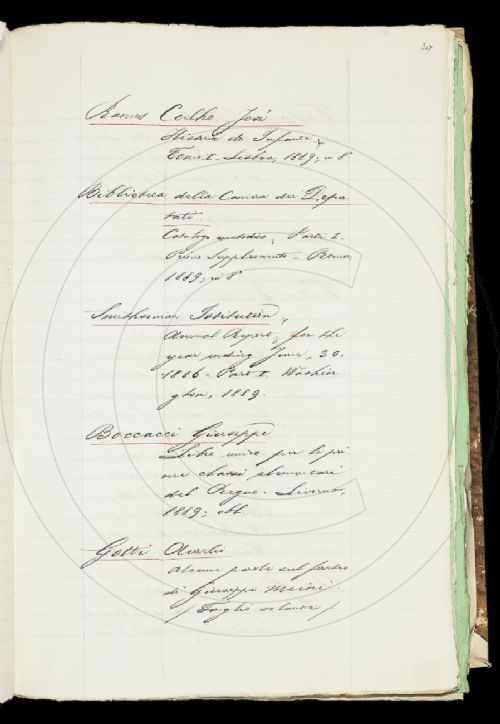 307
Ramos Coelho José
Historia do Infante
Tomo I. Lisboa, 1889; in 8º
Biblioteca della Camera dei Depu
tati.
Catalogo metodico, Parte I.
Primo Supplemento - Roma,
1889; in 8º
Smithsonian Institution,
Annual Report, for the
year ending June, 30.
1886 - Part I. Washin
gton, 1889.
Boccacci Giuseppe
Libro unico per le pri
me classi elementari
del Regno. Livorno,
1889; obl.
Gotti Aurelio
Alcune parole sul feretro
di Giuseppe Meini.
/ Foglio volante /